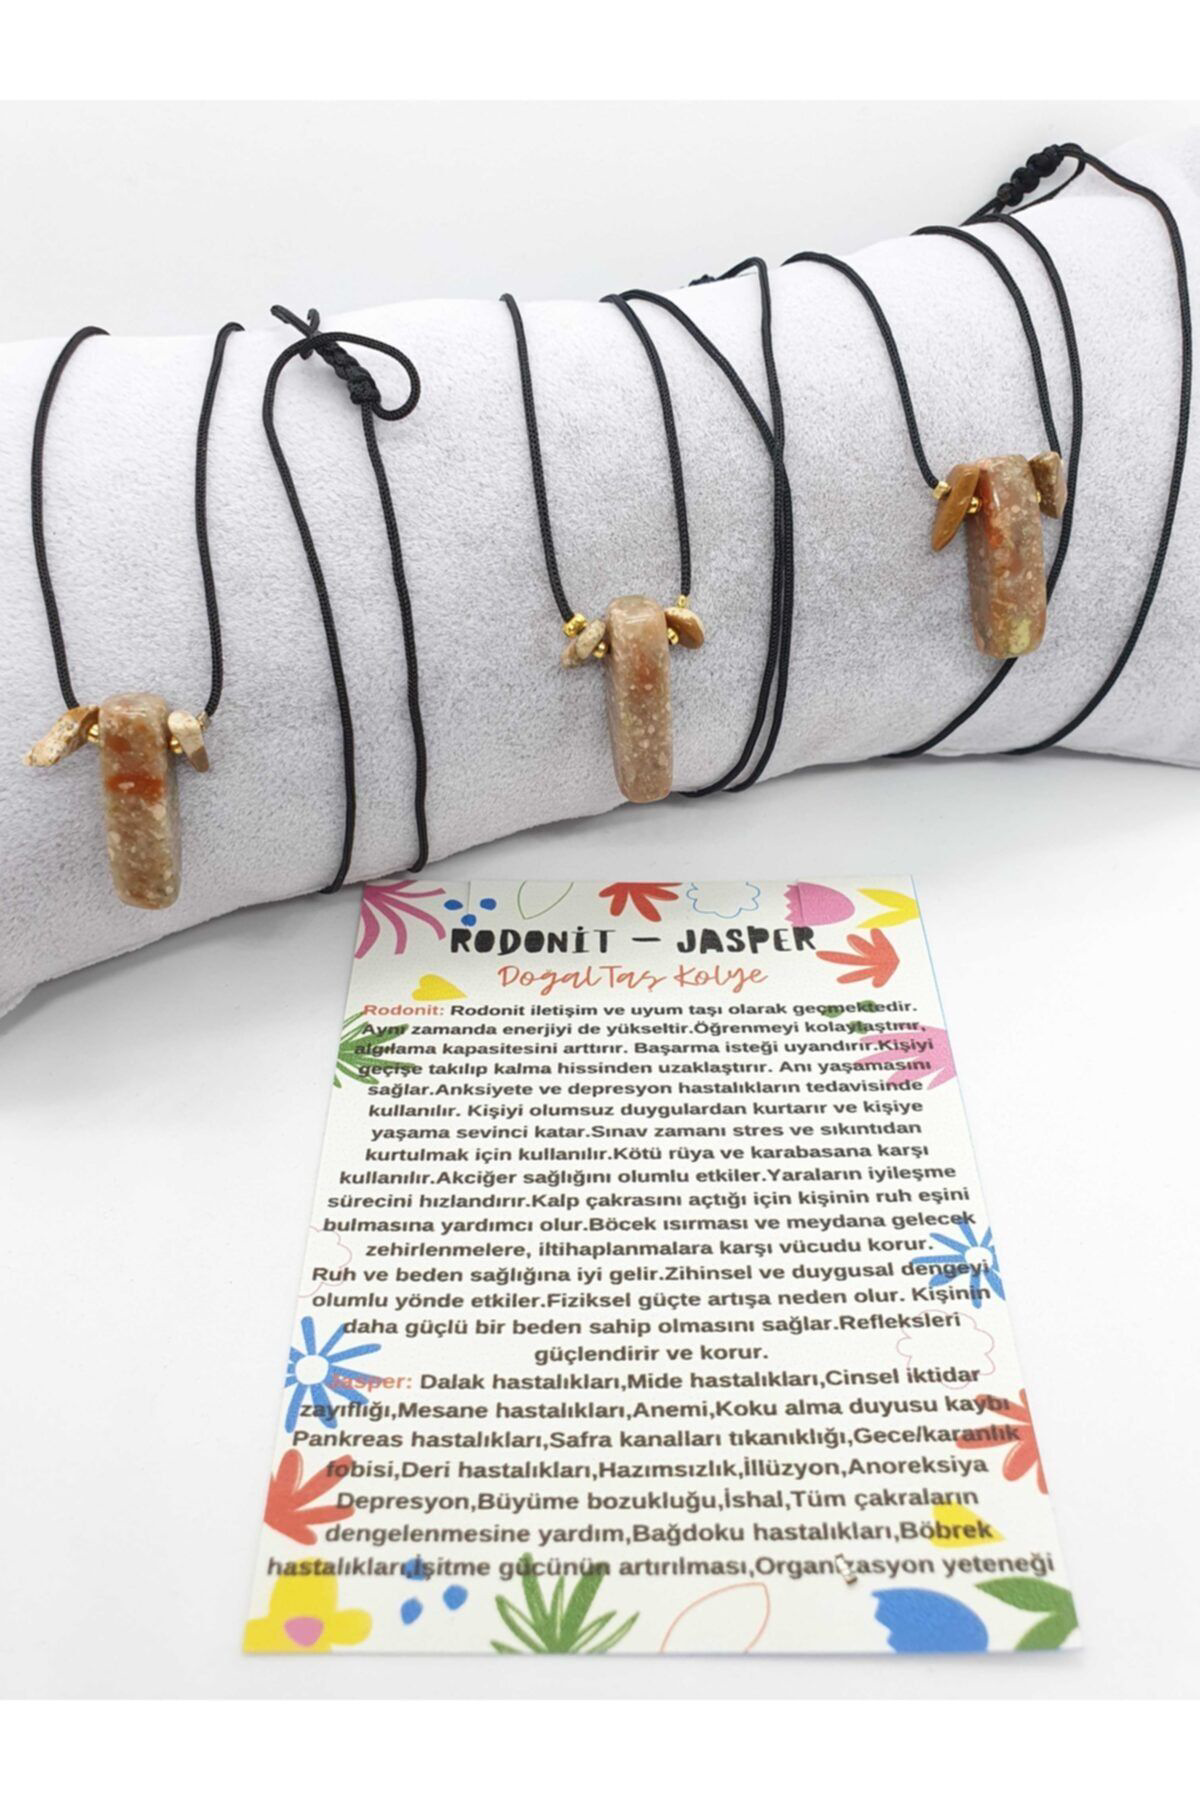 RODONİT – JASPER
Doğal Taş Kolye
Rodonit: Rodonit iletişim ve uyum taşı olarak geçmektedir.
Aynı zamanda enerjiyi de yükseltir.Öğrenmeyi kolaylaştırır,
algılama kapasitesini arttırır. Başarma isteği uyandırır.Kişiyi
geçişe takılıp kalma hissinden uzaklaştırır. Anı yaşamasını
sağlar.Anksiyete ve depresyon hastalıkların tedavisinde
kullanılır. Kişiyi olumsuz duygulardan kurtarır ve kişiye
yaşama sevinci katar.Sınav zamanı stres ve sıkıntıdan
kurtulmak için kullanılır.Kötü rüya ve karabasana karşı
kullanılır.Akciğer sağlığını olumlu etkiler.Yaraların iyileşme
sürecini hızlandırır.Kalp çakrasını açtığı için kişinin ruh eşini
bulmasına yardımcı olur.Böcek ısırması ve meydana gelecek
zehirlenmelere, iltihaplanmalara karşı vücudu korur.
Ruh ve beden sağlığına iyi gelir.Zihinsel ve duygusal dengeyi
olumlu yönde etkiler.Fiziksel güçte artışa neden olur. Kişinin
daha güçlü bir beden sahip olmasını sağlar.Refleksleri
güçlendirir ve korur.
Jasper: Dalak hastalıkları,Mide hastalıkları,Cinsel iktidar
zayıflığı,Mesane hastalıkları,Anemi,Koku alma duyusu kaybı
Pankreas hastalıkları,Safra kanalları tıkanıklığı,Gece/karanlık
fobisi,Deri hastalıkları,Hazımsızlık,İllüzyon,Anoreksiya
Depresyon,Büyüme bozukluğu,İshal,Tüm çakraların
dengelenmesine yardım,Bağdoku hastalıkları,Böbrek
hastalıkları,İşitme gücünün artırılması,Organizasyon yeteneği